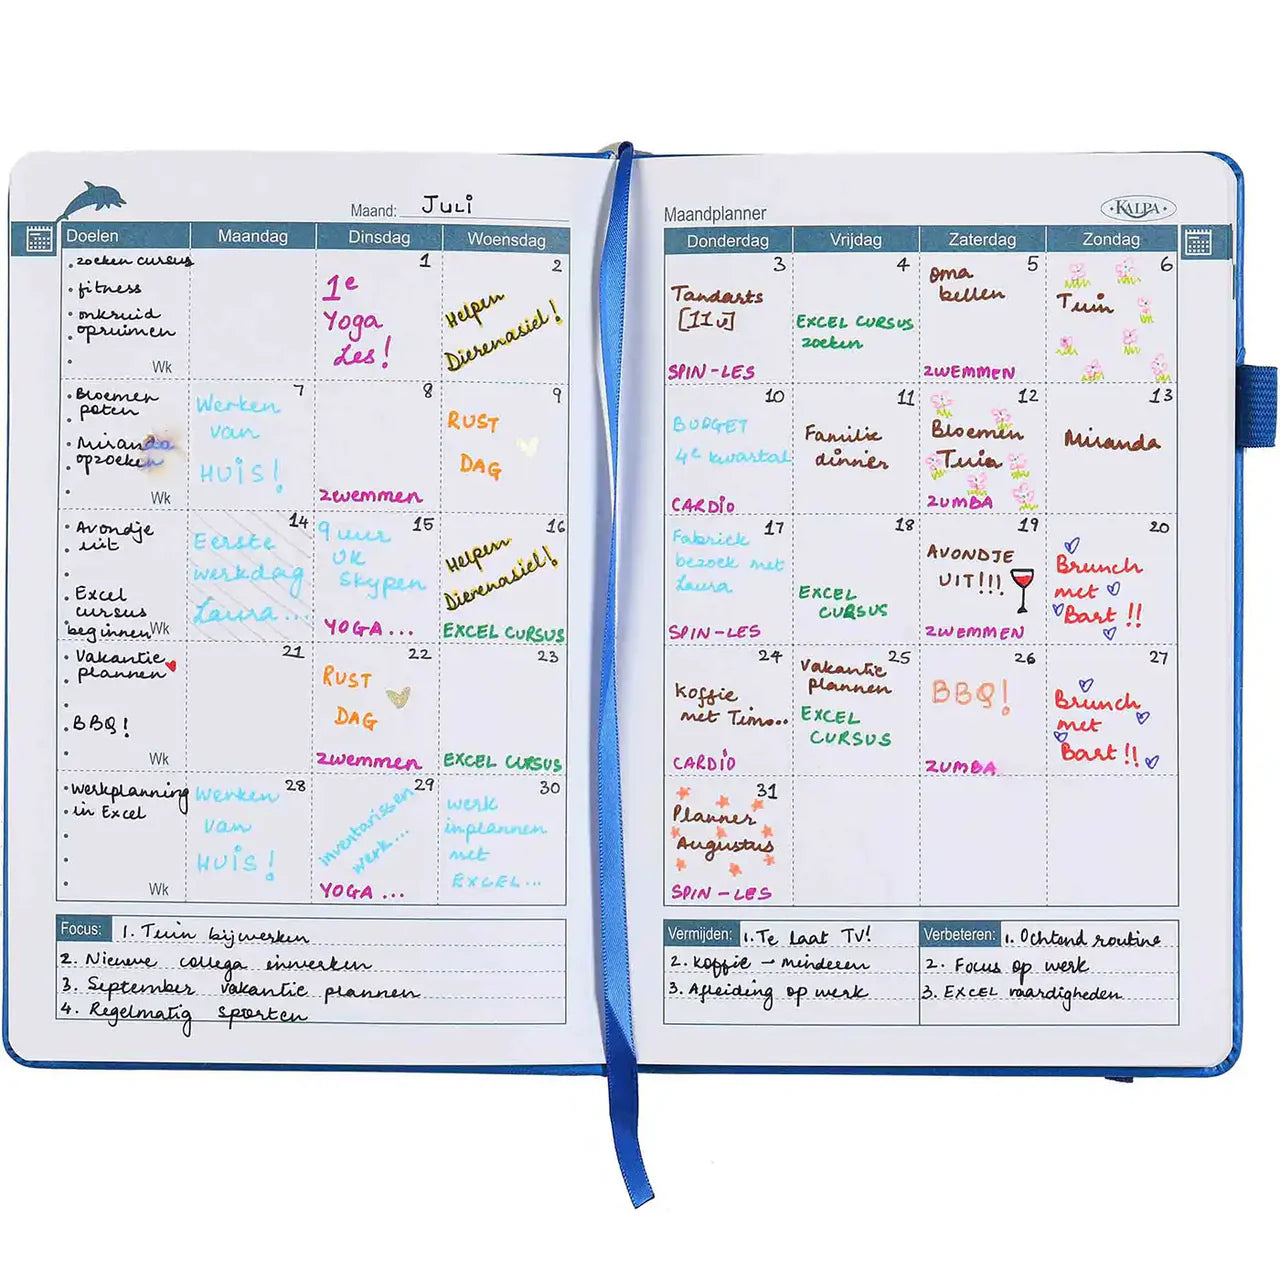 Maand: JULI
Doelen
Maandag
Dinsdag
Woensdag
• zoeken cursus
• fitness
• onkruid
opruimen
•
Wk
1
1e
Yoga
Les!
2
Helpen
Dierenasiel!
• Bloemen
poten
• Miranda
• opzoeken
•
Wk
7
Werken
van
HUiS!
8
zwemmen
9
RUST
DAG
• Avondje
• uit
•
• Excel
cursus
beginnen
Wk
14
Eerste
werkdag
Laura...
15
9 uur
UK
Skypen
YOGA...
16
Helpen
Dierenasiel!
EXCEL CURSUS
• Vakantie
plannen
•
• BBQ!
•
Wk
21
22
RUST
DAG
zwemmen
23
EXCEL CURSUS
• Werkplanning
• in Excel
•
•
•
Wk
28
Werken
van
HUiS!
29
inventarissen
werk...
YOGA...
30
werk
inplannen
met
EXCEL...
Focus: 1. Tuin bijwerken
2. Nieuwe collega inwerken
3. September vakantie plannen
4. Regelmatig sporten
Maandplanner
KALPA
Donderdag
Vrijdag
Zaterdag
Zondag
3
Tandarts
[11u]
SPIN-LES
4
EXCEL CURSUS
zoeken
5
oma
bellen
ZWEMMEN
6
Tuin
10
BUDGET
4e kwartal
CARDiO
11
Familie
dinner
12
Bloemen
Tuin
ZUMBA
13
Miranda
17
Fabriek
bezoek met
Laura
SPIN-LES
18
EXCEL
CURSUS
19
AVONDJE
UIT!!!
ZWEMMEN
20
Brunch
met
Bart!!
24
Koffie
met Timo..
CARDiO
25
Vakantie
plannen
EXCEL
CURSUS
26
BBQ!
ZUMBA
27
Brunch
met
Bart!!
31
Planner
Augustus
SPIN-LES
Vermijden: 1. Te laat TV!
2. Koffie → minderen
3. Afleiding op werk
Verbeteren: 1. Ochtend routine
2. Focus op werk
3. EXCEL vaardigheden